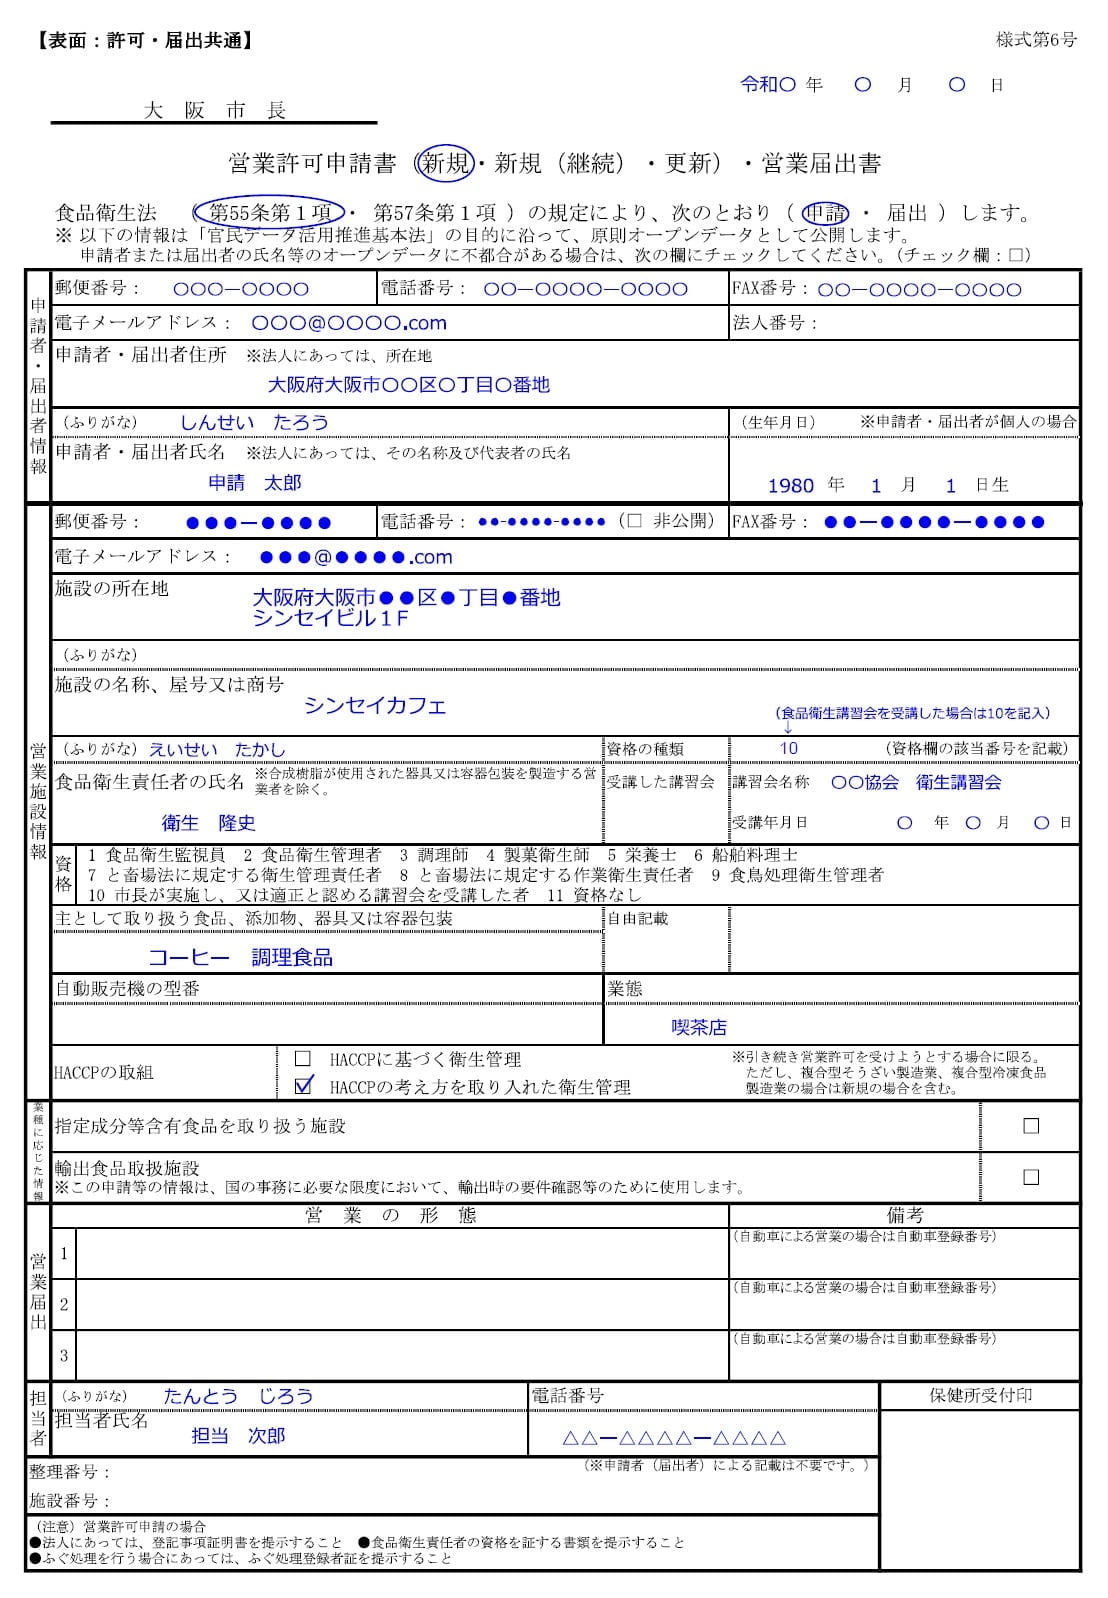 【表面：許可・届出共通】
様式第6号
令和〇 年 〇 月 〇 日
大 阪 市 長
営業許可申請書（新規・新規（継続）・更新）・営業届出書
食品衛生法 （ 第55条第１項 ・ 第57条第１項 ）の規定により、次のとおり（ 申請 ・ 届出 ）します。
※ 以下の情報は「官民データ活用推進基本法」の目的に沿って、原則オープンデータとして公開します。
申請者または届出者の氏名等のオープンデータに不都合がある場合は、次の欄にチェックしてください。（チェック欄：□）
申請者・届出者情報
郵便番号： 〇〇〇－〇〇〇〇 電話番号： 〇〇－〇〇〇〇－〇〇〇〇 FAX番号：〇〇－〇〇〇〇－〇〇〇〇
電子メールアドレス： 〇〇〇@〇〇〇〇.com 法人番号：
申請者・届出者住所 ※法人にあっては、所在地
大阪府大阪市〇〇区〇丁目〇番地
（ふりがな） しんせい たろう （生年月日） ※申請者・届出者が個人の場合
申請者・届出者氏名 ※法人にあっては、その名称及び代表者の氏名
申請 太郎 1980 年 1 月 1 日生
営業施設情報
郵便番号： ●●●－●●●● 電話番号： ●●-●●●●-●●●● （□ 非公開） FAX番号： ●●－●●●●－●●●●
電子メールアドレス： ●●●@●●●●.com
施設の所在地
大阪府大阪市●●区●丁目●番地
シンセイビル１F
（ふりがな）
施設の名称、屋号又は商号
シンセイカフェ
（食品衛生講習会を受講した場合は10を記入）
↓
（ふりがな） えいせい たかし 資格の種類 10 （資格欄の該当番号を記載）
食品衛生責任者の氏名 ※合成樹脂が使用された器具又は容器包装を製造する営業者を除く。
受講した講習会 講習会名称 〇〇協会 衛生講習会
衛生 隆史 受講年月日 〇 年 〇 月 〇 日
資格
1 食品衛生監視員 2 食品衛生管理者 3 調理師 4 製菓衛生師 5 栄養士 6 船舶料理士
7 と畜場法に規定する衛生管理責任者 8 と畜場法に規定する作業衛生責任者 9 食鳥処理衛生管理者
10 市長が実施し、又は適正と認める講習会を受講した者 11 資格なし
主として取り扱う食品、添加物、器具又は容器包装 自由記載
コーヒー 調理食品
自動販売機の型番 業態
喫茶店
HACCPの取組
□ HACCPに基づく衛生管理
☑ HACCPの考え方を取り入れた衛生管理
※引き続き営業許可を受けようとする場合に限る。
ただし、複合型そうざい製造業、複合型冷凍食品
製造業の場合は新規の場合を含む。
業種に応じた情報
指定成分等含有食品を取り扱う施設 □
輸出食品取扱施設 □
※この申請等の情報は、国の事務に必要な限度において、輸出時の要件確認等のために使用します。
営業届出
営 業 の 形 態 備考
1 （自動車による営業の場合は自動車登録番号）
2 （自動車による営業の場合は自動車登録番号）
3 （自動車による営業の場合は自動車登録番号）
担当者
（ふりがな） たんとう じろう 電話番号 保健所受付印
担当者氏名
担当 次郎 △△－△△△△－△△△△
整理番号： （※申請者（届出者）による記載は不要です。）
施設番号：
（注意）営業許可申請の場合
●法人にあっては、登記事項証明書を提示すること ●食品衛生責任者の資格を証する書類を提示すること
●ふぐ処理を行う場合にあっては、ふぐ処理登録者証を提示すること